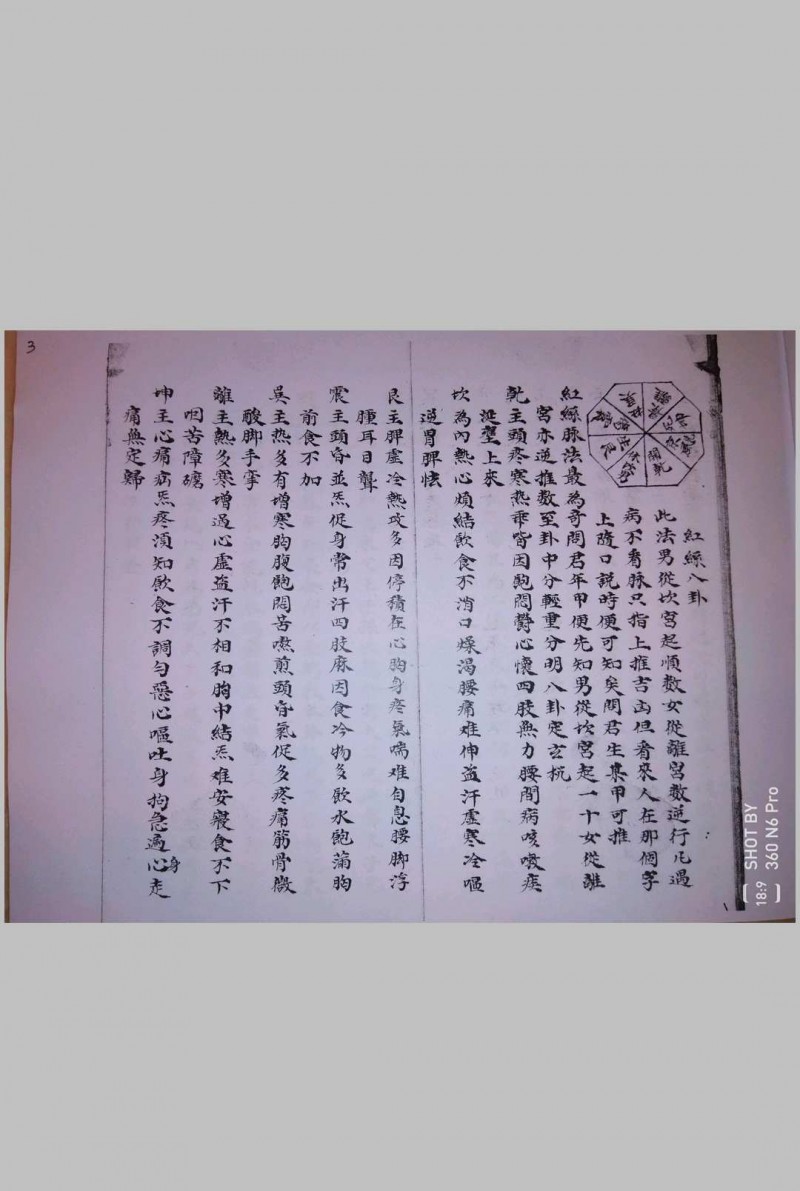 3
紅絲八卦
此法男從坎宮起順数女從離宮数逆行凢遇
病不看脉只指上推吉凶但看來人在那個字
上隨口説時便可知矣問君生集甲可推
紅絲脉法最為竒問君年甲便先知男從坎宮起一十女從離
宮亦逆推数至卦中分輕重分明八卦定玄杭
乾主頭疼寒热乖皆因飽悶欝心懷四肢無力腰間病咳嗽痰
涎壅上來
坎為內熱心煩結飲食不消口燥渴腰痛难伸盗汗虛寒冷嘔
逆胃脾怯
艮主脾虛冷熱攻多因停積在心胸身疼氣喘难自息腰脚浮
腫耳目聾
震主頭昏並炁促身常出汗四肢麻因食冷物多飲水飽滿胸
前食不加
巽主热多有增寒胸腹飽悶苦嗽煎頭昏氣促多疼痛筋骨㣲
酸脚手挛
離主熱多寒增過心虛盗汗不相和胸中結炁难安寢食不下
咽苦障礳
坤主心痛病炁疼湏知飲食不調勻惡心嘔吐身拘急遍心身走
痛無定歸
SHOT BY
360 N6 Pro
18:9